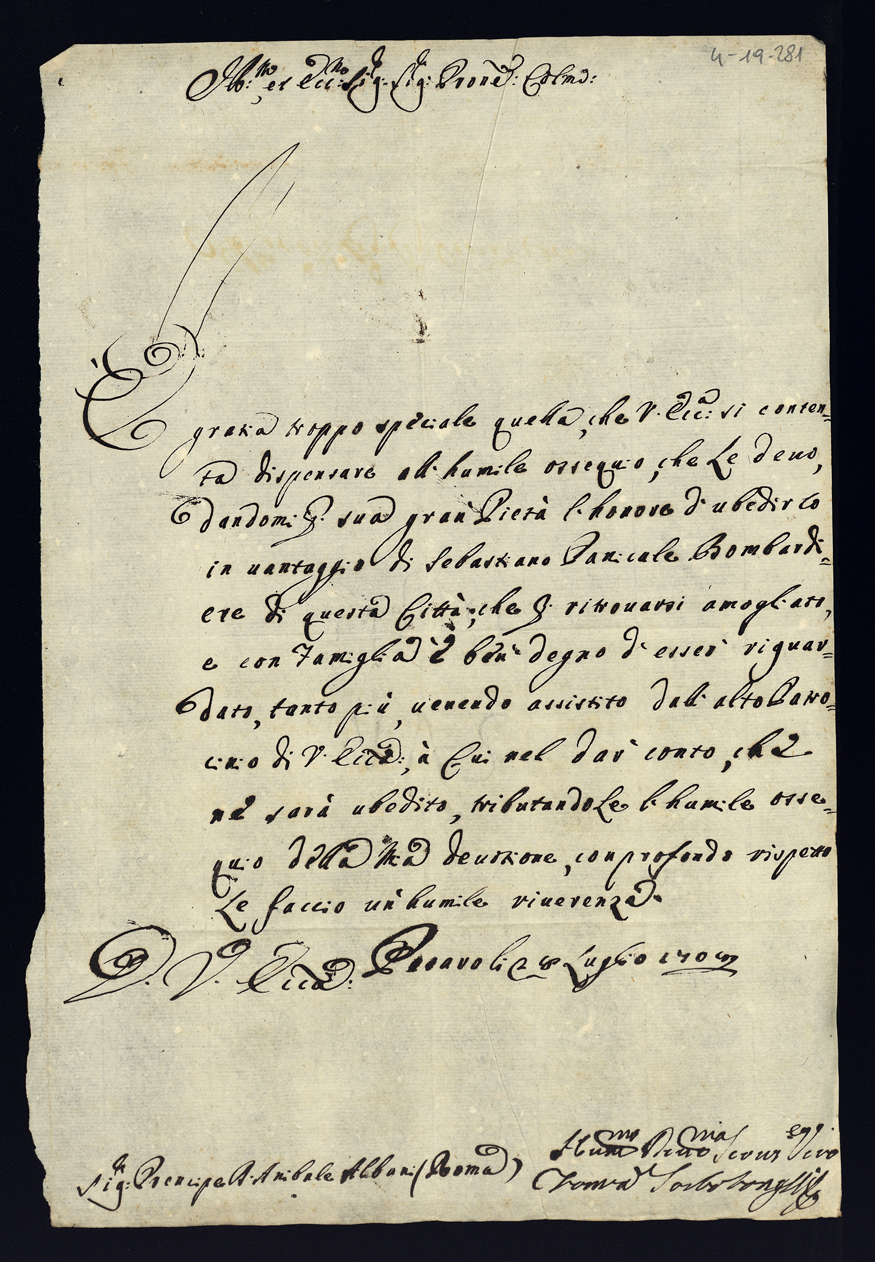 4-19-281
Ill:mo et Ecc:mo Sig:r Sig:r Prone: Colmo:
È gratia troppo speciale quella, che V. Ecc:a si conten=
ta dispensare all'humile ossequio, che Le deuo,
dandomi p. sua gran Pietà l'honore d'ubedirLo
in uantaggio di Sebastiano Panicale Bombardi=
ere di questa Città, che p. ritrouarsi amogliato,
e con famiglia è ben degno d'esser riguar=
dato, tanto più, uenendo assistito dall'alto Patro=
cinio di V. Ecc:a, à Cui nel dar conto, che
ne sarà ubedito, tributandoLe l'humile osse=
quio della mia deuotione, con profondo rispetto
Le faccio un'humile riuerenza.
D. V. Ecc:a: 28 Luglio
Sig:r Prencipe D. Anibale Albani (Roma)
Hum:mo Deuo